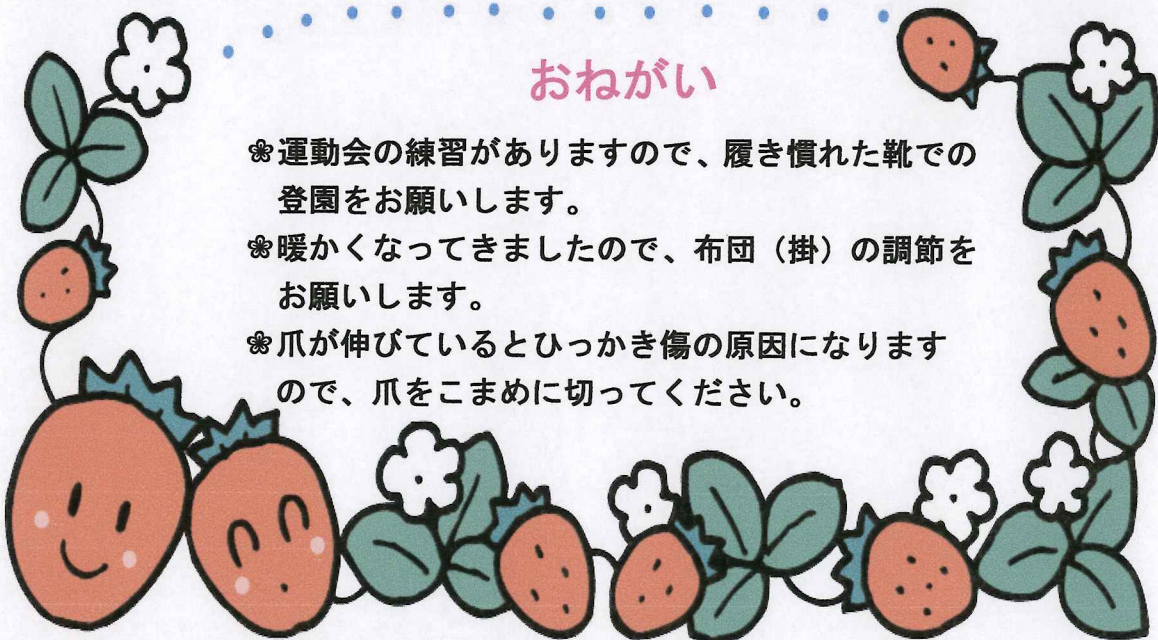 おねがい
❀運動会の練習がありますので、履き慣れた靴での
登園をお願いします。
❀暖かくなってきましたので、布団（掛）の調節を
お願いします。
❀爪が伸びているとひっかき傷の原因になります
ので、爪をこまめに切ってください。